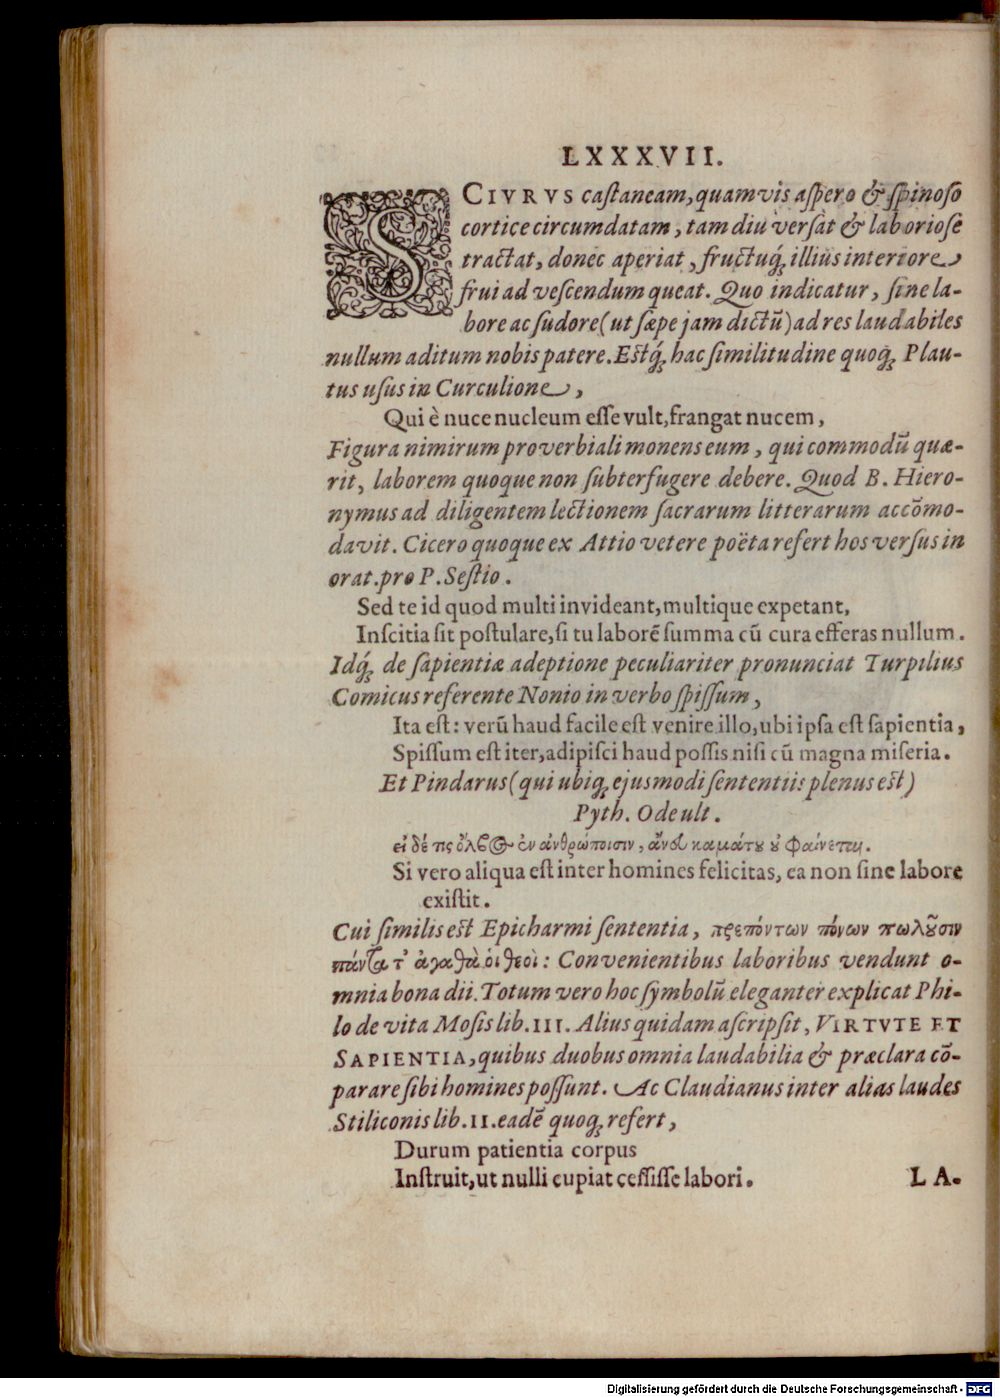 LXXXVII.
SCIVRVS castaneam, quamvis aspero & spinoso
cortice circumdatam, tam diu versat & laboriosè
tractat, donec aperiat, fructuq́; illius interiore
frui ad vescendum queat. Quo indicatur, sine la-
bore ac sudore (ut sæpe jam dictū) ad res laudabiles
nullum aditum nobis patere. Estq́; hac similitudine quoq́; Plau-
tus usus in Curculione,
Qui è nuce nucleum esse vult, frangat nucem,
Figura nimirum proverbiali monens eum, qui commodū quæ-
rit, laborem quoque non subterfugere debere. Quod B. Hiero-
nymus ad diligentem lectionem sacrarum litterarum accōmo-
davit. Cicero quoque ex Attio vetere poëta refert hos versus in
orat. pro P. Sestio.
Sed te id quod multi invideant, multique expetant,
Inscitia sit postulare, si tu laborē summa cū cura efferas nullum.
Idq́; de sapientiæ adeptione peculiariter pronunciat Turpilius
Comicus referente Nonio in verbo spissum,
Ita est: verū haud facile est venire illo, ubi ipsa est sapientia,
Spissum est iter, adipisci haud possis nisi cū magna miseria.
Et Pindarus (qui ubiq; ejusmodi sententiis plenus est)
Pyth. Ode ult.
εἰ δέ τις ὄλβος ἐν ἀνθρώποισιν, ἄνευ καμάτου οὐ φαίνεται.
Si vero aliqua est inter homines felicitas, ea non sine labore
existit.
Cui similis est Epicharmi sententia, πρεπόντων πόνων πωλοῦσιν
πάντα τ' ἀγαθὰ οἱ θεοὶ: Convenientibus laboribus vendunt o-
mnia bona dii. Totum vero hoc symbolū eleganter explicat Phi-
lo de vita Mosis lib. III. Alius quidam ascripsit, VIRTVTE ET
SAPIENTIA, quibus duobus omnia laudabilia & præclara cō-
parare sibi homines possunt. Ac Claudianus inter alias laudes
Stiliconis lib. II. eadē quoq; refert,
Durum patientia corpus
Instruit, ut nulli cupiat cessisse labori.
LA.
Digitalisierung gefördert durch die Deutsche Forschungsgemeinschaft - DFG